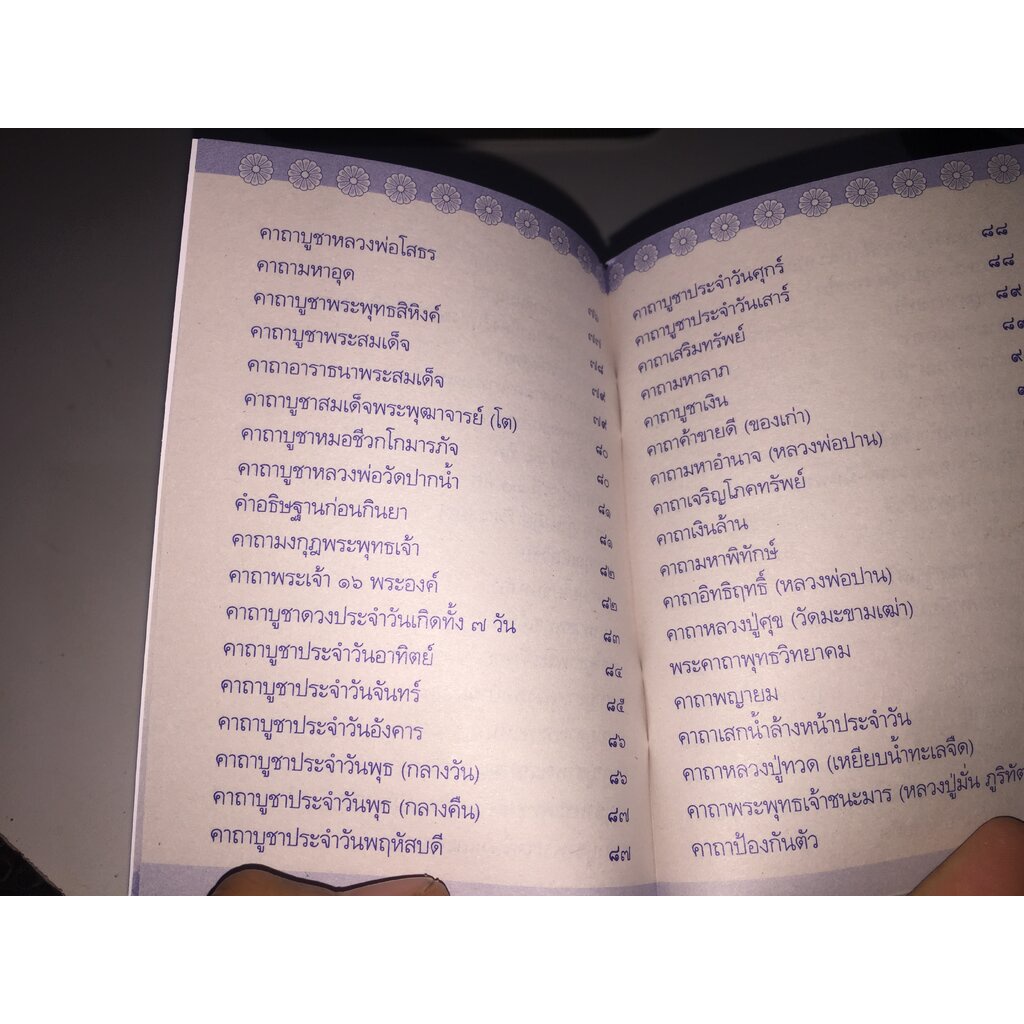 คาถาบูชาหลวงพ่อโสธร ๗๖
คาถามหาอุด ๗๗
คาถาบูชาพระพุทธสิหิงค์ ๗๘
คาถาบูชาพระสมเด็จ ๗๙
คาถาอาราธนาพระสมเด็จ ๗๙
คาถาบูชาสมเด็จพระพุฒาจารย์ (โต) ๘๐
คาถาบูชาหมอชีวกโกมารภัจ ๘๐
คาถาบูชาหลวงพ่อวัดปากน้ำ ๘๑
คำอธิษฐานก่อนกินยา ๘๑
คาถามงกุฎพระพุทธเจ้า ๘๒
คาถาพระเจ้า ๑๖ พระองค์ ๘๒
คาถาบูชาดวงประจำวันเกิดทั้ง ๗ วัน ๘๓
คาถาบูชาประจำวันอาทิตย์ ๘๔
คาถาบูชาประจำวันจันทร์ ๘๕
คาถาบูชาประจำวันอังคาร ๘๖
คาถาบูชาประจำวันพุธ (กลางวัน) ๘๖
คาถาบูชาประจำวันพุธ (กลางคืน) ๘๗
คาถาบูชาประจำวันพฤหัสบดี ๘๗
คาถาบูชาประจำวันศุกร์ ๘๘
คาถาบูชาประจำวันเสาร์ ๘๘
คาถาเสริมทรัพย์ ๘๙
คาถามหาลาภ
คาถาบูชาเงิน
คาถาค้าขายดี (ของเก่า)
คาถามหาอำนาจ (หลวงพ่อปาน)
คาถาเจริญโภคทรัพย์
คาถาเงินล้าน
คาถามหาพิทักษ์
คาถาอิทธิฤทธิ์ (หลวงพ่อปาน)
คาถาหลวงปู่ศุข (วัดมะขามเฒ่า)
พระคาถาพุทธวิทยาคม
คาถาพญายม
คาถาเสกน้ำล้างหน้าประจำวัน
คาถาหลวงปู่ทวด (เหยียบน้ำทะเลจืด)
คาถาพระพุทธเจ้าชนะมาร (หลวงปู่มั่น
คาถาป้องกันตัว